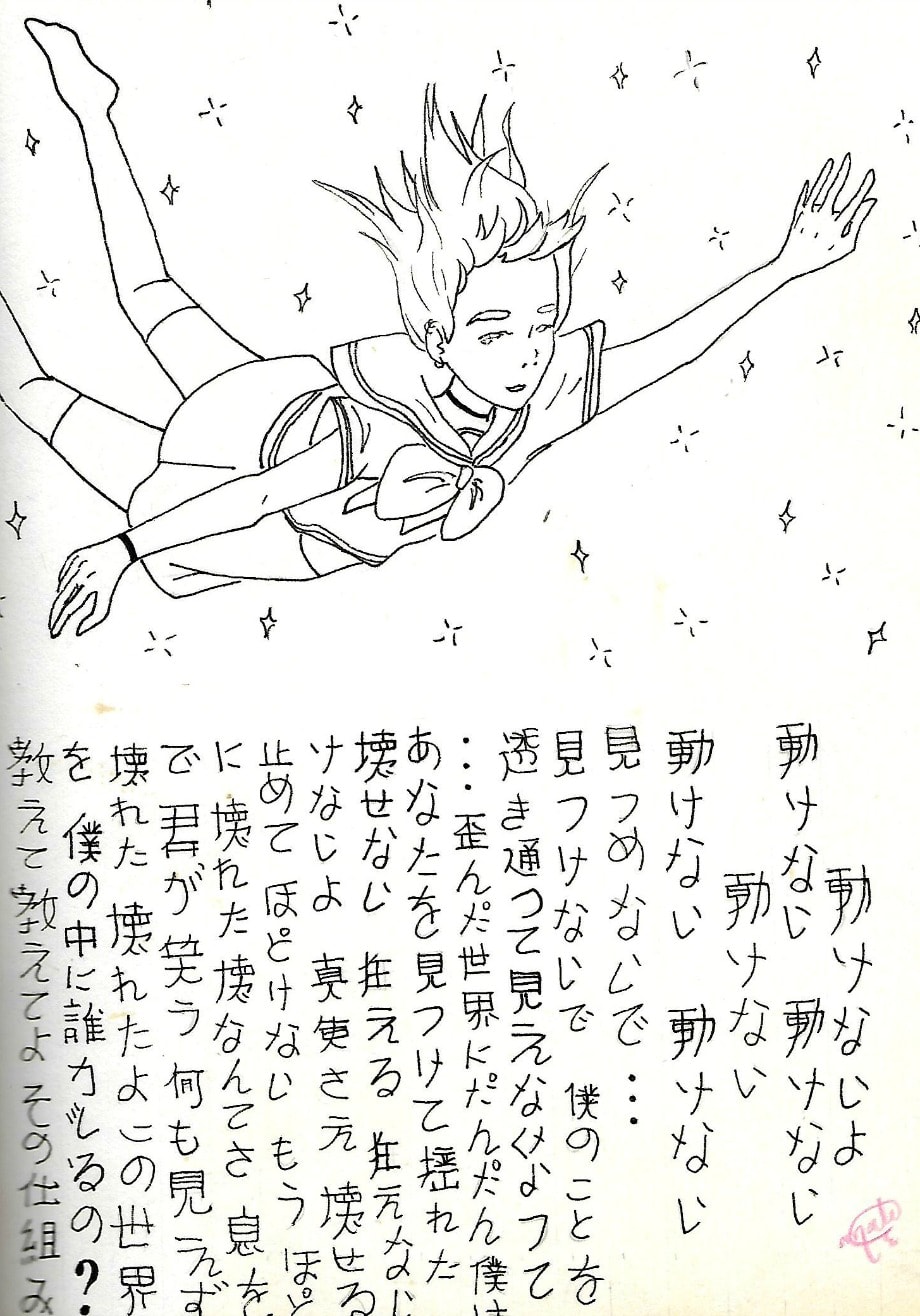 教えて教えてよその仕組み
を 僕の中に誰がいるの？
壊れた 壊れたよこの世界
で君が笑う何も見えず
に 壊れた壊なんてさ 息を
止めて ほどけない もう ほど
けないよ 真実さえ 壊せる
壊せない 狂える 狂えない
あなたを見つけて揺れた
…歪んだ世界にだんだん僕は
透き通って見えなくなって
見つけないで 僕のことを
見つめないで…
動けない 動けない
動けない
動けない 動けない
動けないよ